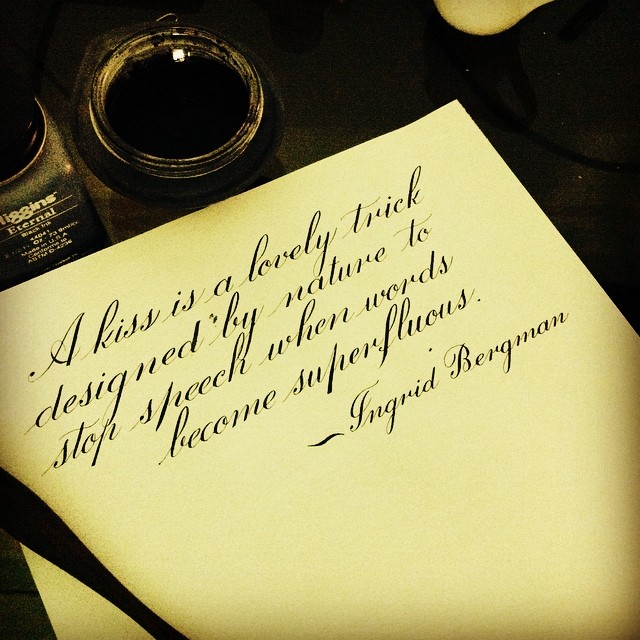 Higgins
Eternal
A kiss is a lovely trick
designed by nature to
stop speech when words
become superfluous.
~Ingrid Bergman